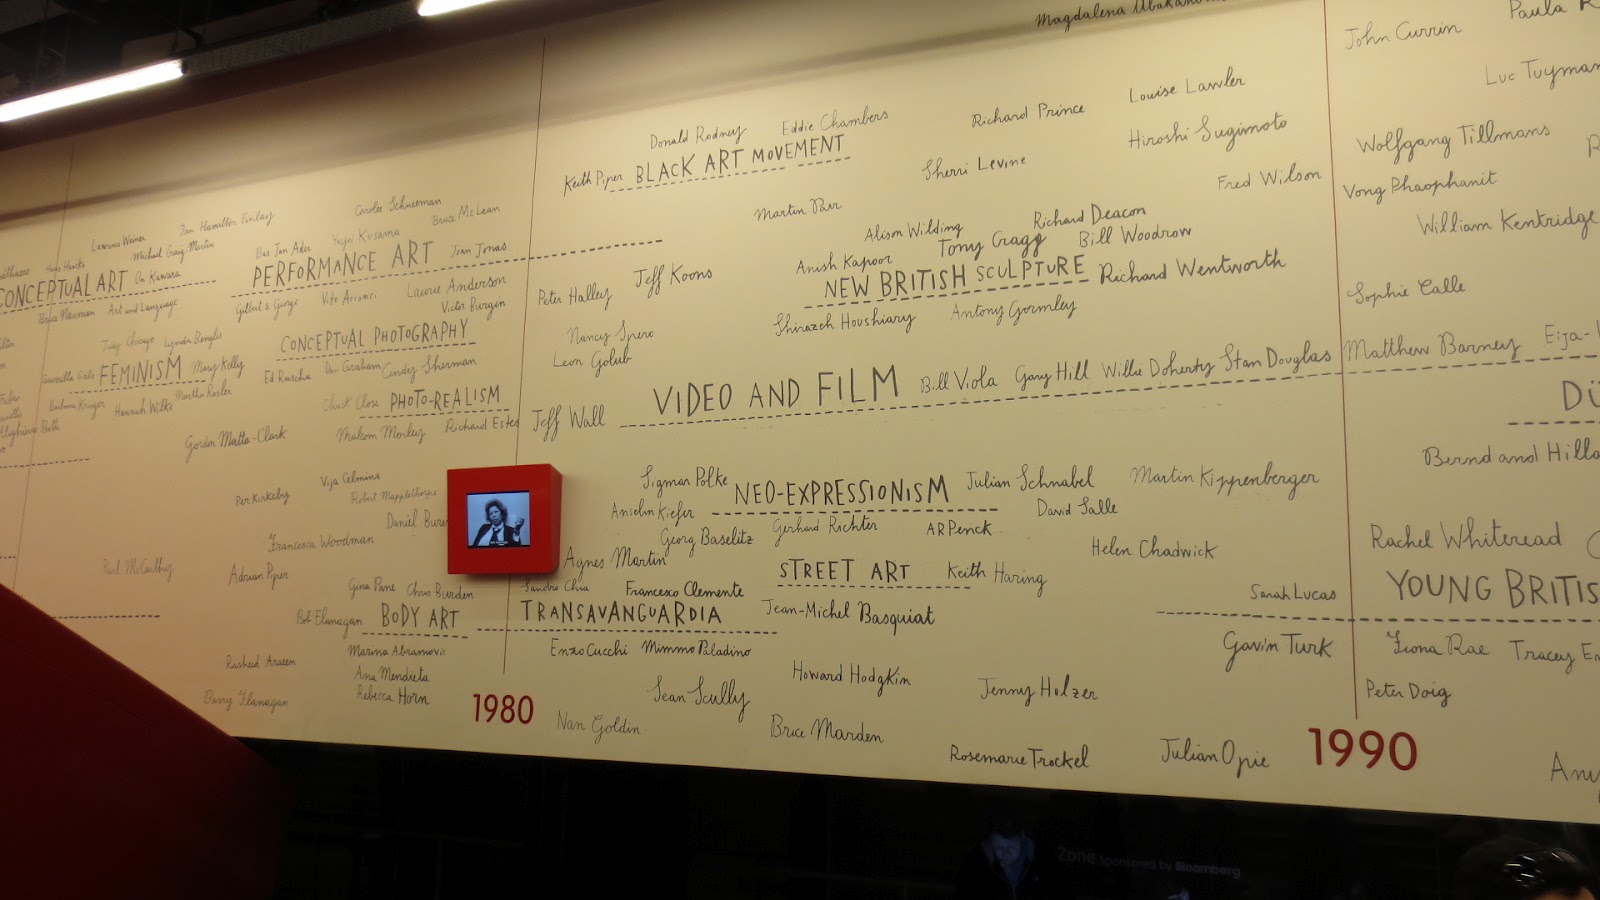 Lawrence Weiner
Ian Hamilton Finlay
Michael Craig-Martin
Hans Haacke
CONCEPTUAL ART
On Kawara
Bruce Nauman
Art and Language
Carolee Schneeman
Bruce McLean
Bas Jan Ader
Yayoi Kusama
PERFORMANCE ART
Joan Jonas
Gilbert & George
Vito Acconci
Laurie Anderson
Victor Burgin
CONCEPTUAL PHOTOGRAPHY
Ed Ruscha
Dan Graham
Cindy Sherman
Judy Chicago
Lynda Benglis
Guerrilla Girls
FEMINISM
Mary Kelly
Barbara Kruger
Hannah Wilke
Martha Rosler
Chuck Close
PHOTO-REALISM
Malcom Morley
Richard Estes
Gordon Matta-Clark
Vija Celmins
Per Kirkeby
Robert Mapplethorpe
Daniel Buren
Francesca Woodman
Paul McCarthy
Adrian Piper
Gina Pane
Chris Burden
Bob Flanagan
BODY ART
Marina Abramovic
Ana Mendieta
Rebecca Horn
Rasheed Araeen
Barry Flanagan
1980
Donald Rodney
Eddie Chambers
Keith Piper
BLACK ART MOVEMENT
Martin Parr
Richard Prince
Louise Lawler
Hiroshi Sugimoto
Sherri Levine
Fred Wilson
Peter Halley
Jeff Koons
Nancy Spero
Leon Golub
Alison Wilding
Richard Deacon
Tony Cragg
Bill Woodrow
Anish Kapoor
NEW BRITISH SCULPTURE
Richard Wentworth
Shirazeh Houshiary
Antony Gormley
Jeff Wall
VIDEO AND FILM
Bill Viola
Gary Hill
Willie Doherty
Stan Douglas
Matthew Barney
Eija-
Sigmar Polke
NEO-EXPRESSIONISM
Julian Schnabel
Martin Kippenberger
Anselm Kiefer
Georg Baselitz
Gerhard Richter
AR Penck
David Salle
Helen Chadwick
Agnes Martin
STREET ART
Keith Haring
Jean-Michel Basquiat
Sandro Chia
Francesco Clemente
TRANSAVANGUARDIA
Enzo Cucchi
Mimmo Paladino
Howard Hodgkin
Sean Scully
Jenny Holzer
Nan Goldin
Brice Marden
Rosemarie Trockel
Julian Opie
Sarah Lucas
Gavin Turk
1990
Magdalena Abakano
John Currin
Paula R
Luc Tuyman
Wolfgang Tillmans
Vong Phaophanit
William Kentridge
Sophie Calle
DÜ
Bernd and Hilla
Rachel Whiteread
YOUNG BRITIS
Fiona Rae
Tracey E
Peter Doig
Zone sponsored by Bloomberg